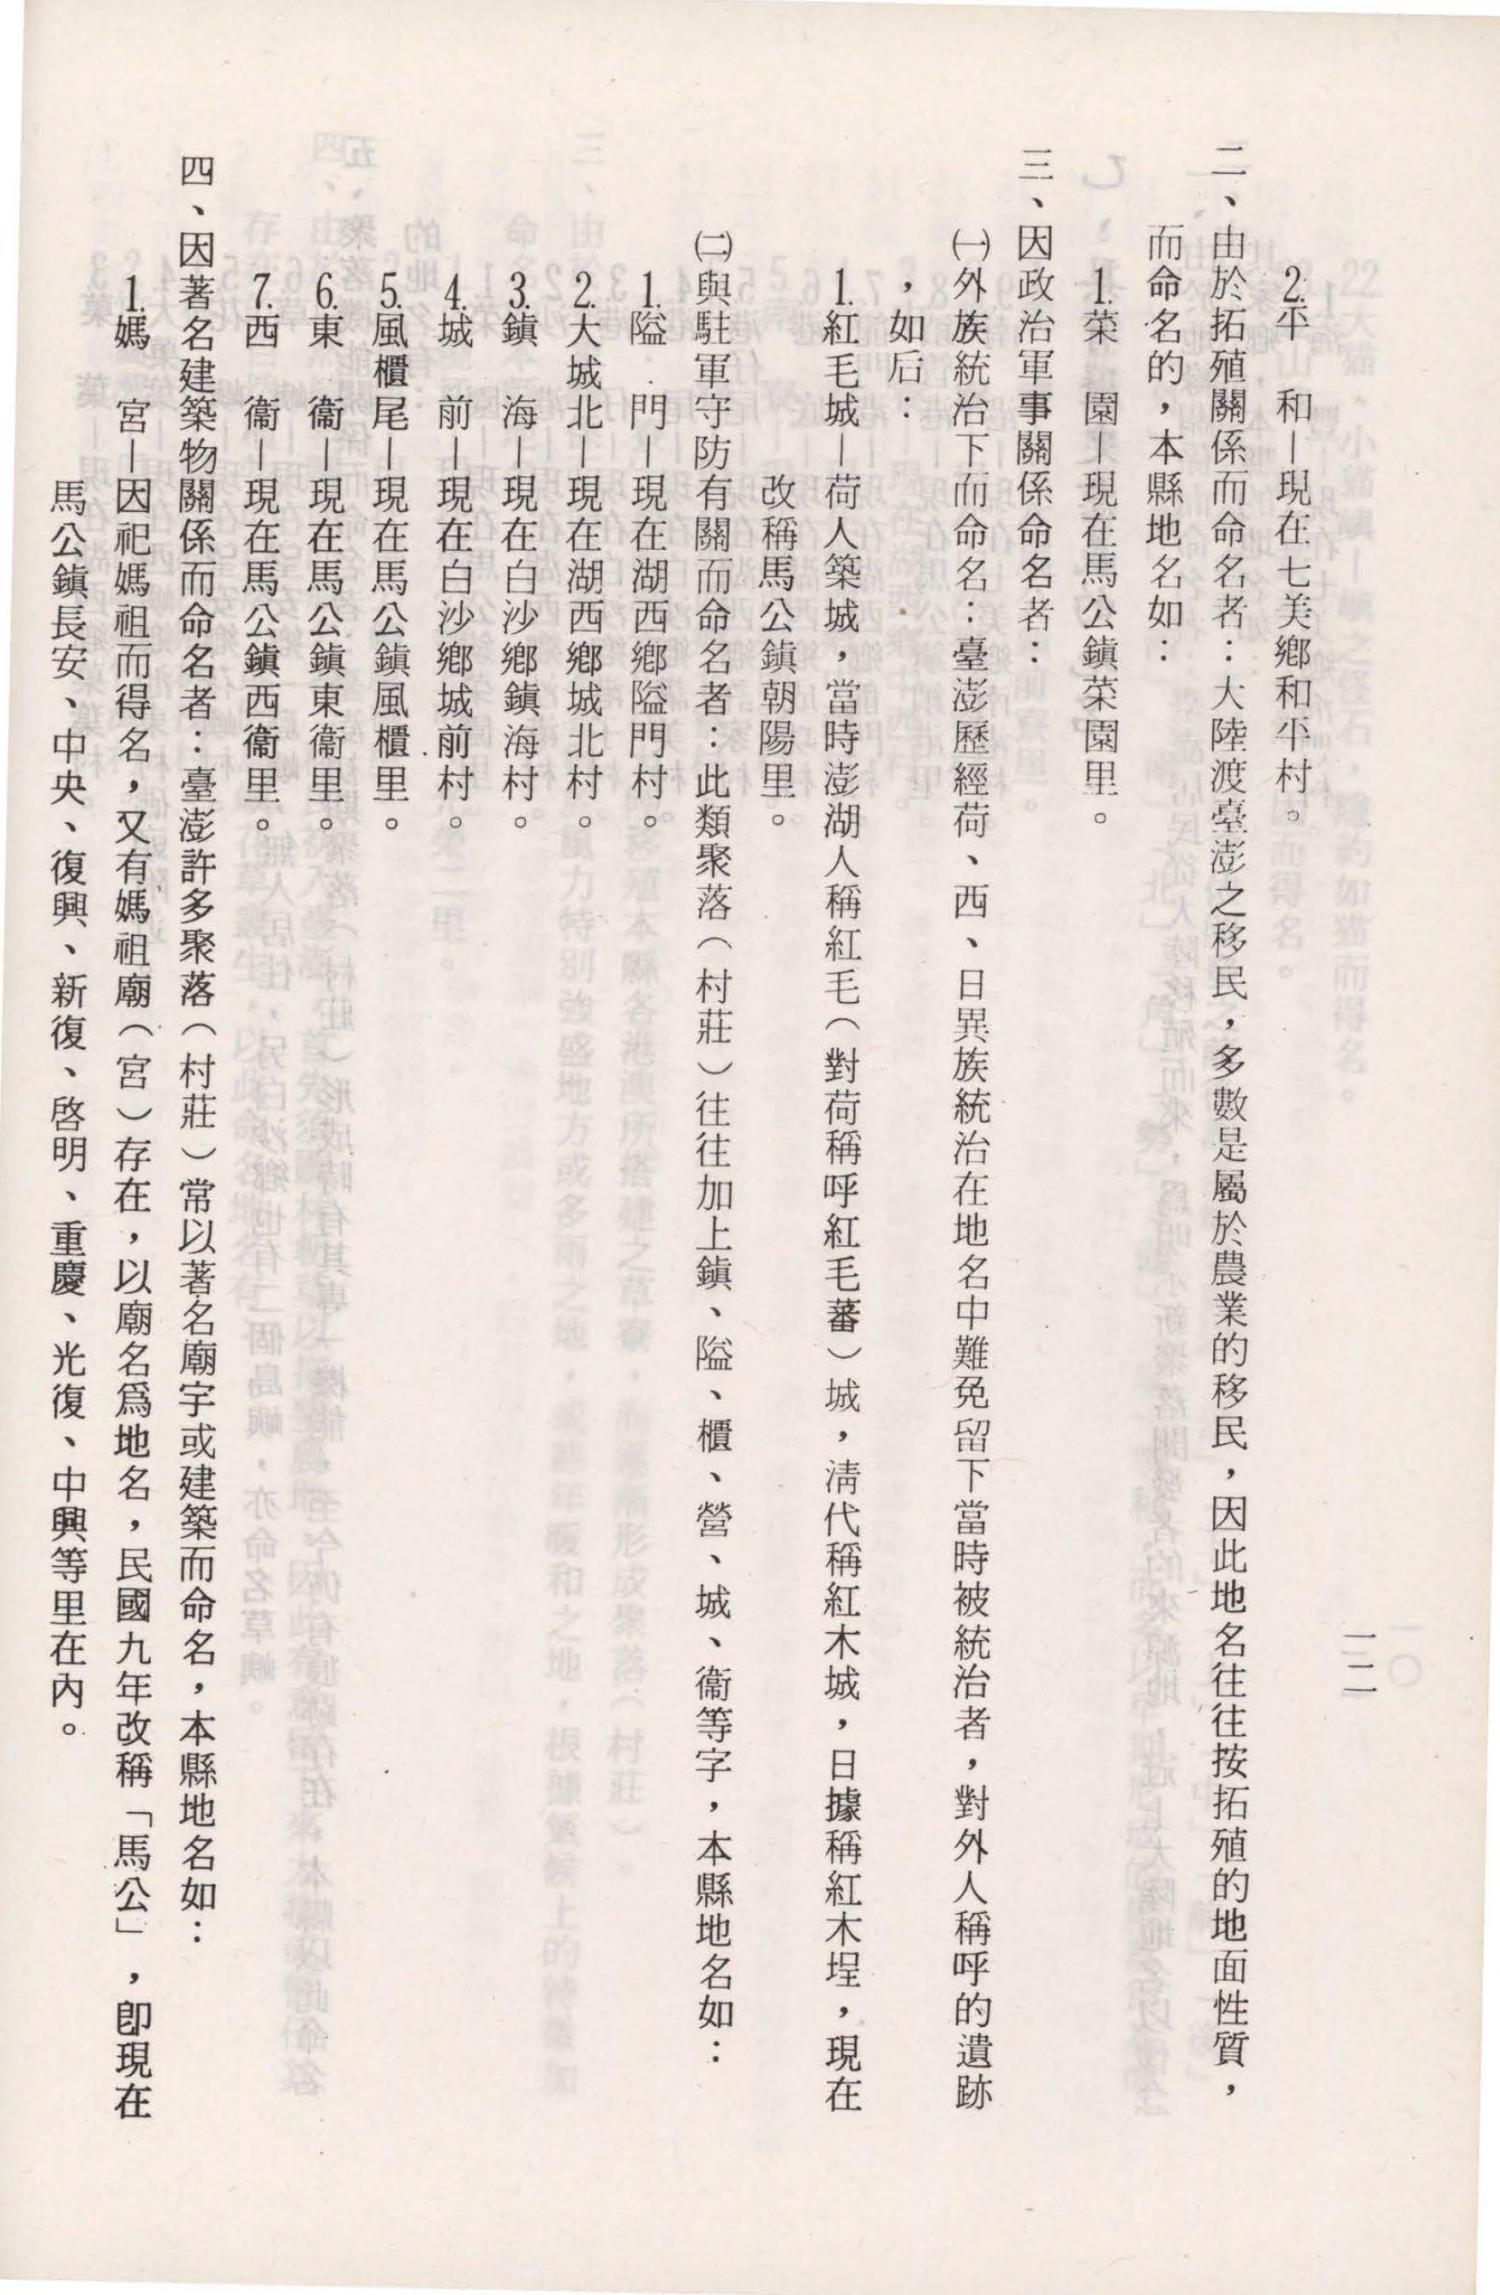 一二
2.平　和—現在七美鄉和平村。
二、由於拓殖關係而命名者：大陸渡臺澎之移民，多數是屬於農業的移民，因此地名往往按拓殖的地面性質，
而命名的，本縣地名如：
1.菜　園—現在馬公鎮菜園里。
三、因政治軍事關係命名者：
㈠外族統治下而命名：臺澎歷經荷、西、日異族統治在地名中難免留下當時被統治者，對外人稱呼的遺跡
，如后：
1.紅毛城—荷人築城，當時澎湖人稱紅毛（對荷稱呼紅毛蕃）城，淸代稱紅木城，日據稱紅木埕，現在
改稱馬公鎮朝陽里。
㈡與駐軍守防有關而命名者：此類聚落（村莊）往往加上鎮、隘、櫃、營、城、衞等字，本縣地名如：
1.隘　門—現在湖西鄉隘門村。
2.大城北—現在湖西鄉城北村。
3.鎮　海—現在白沙鄉鎮海村。
4.城　前—現在白沙鄉城前村。
5.風櫃尾—現在馬公鎮風櫃里。
6.東　衞—現在馬公鎮東衞里。
7.西　衞—現在馬公鎮西衞里。
四、因著名建築物關係而命名者：臺澎許多聚落（村莊）常以著名廟宇或建築而命名，本縣地名如：
1.媽　宮—因祀媽祖而得名，又有媽祖廟（宮）存在，以廟名爲地名，民國九年改稱「馬公」，卽現在
馬公鎮長安、中央、復興、新復、啓明、重慶、光復、中興等里在內。